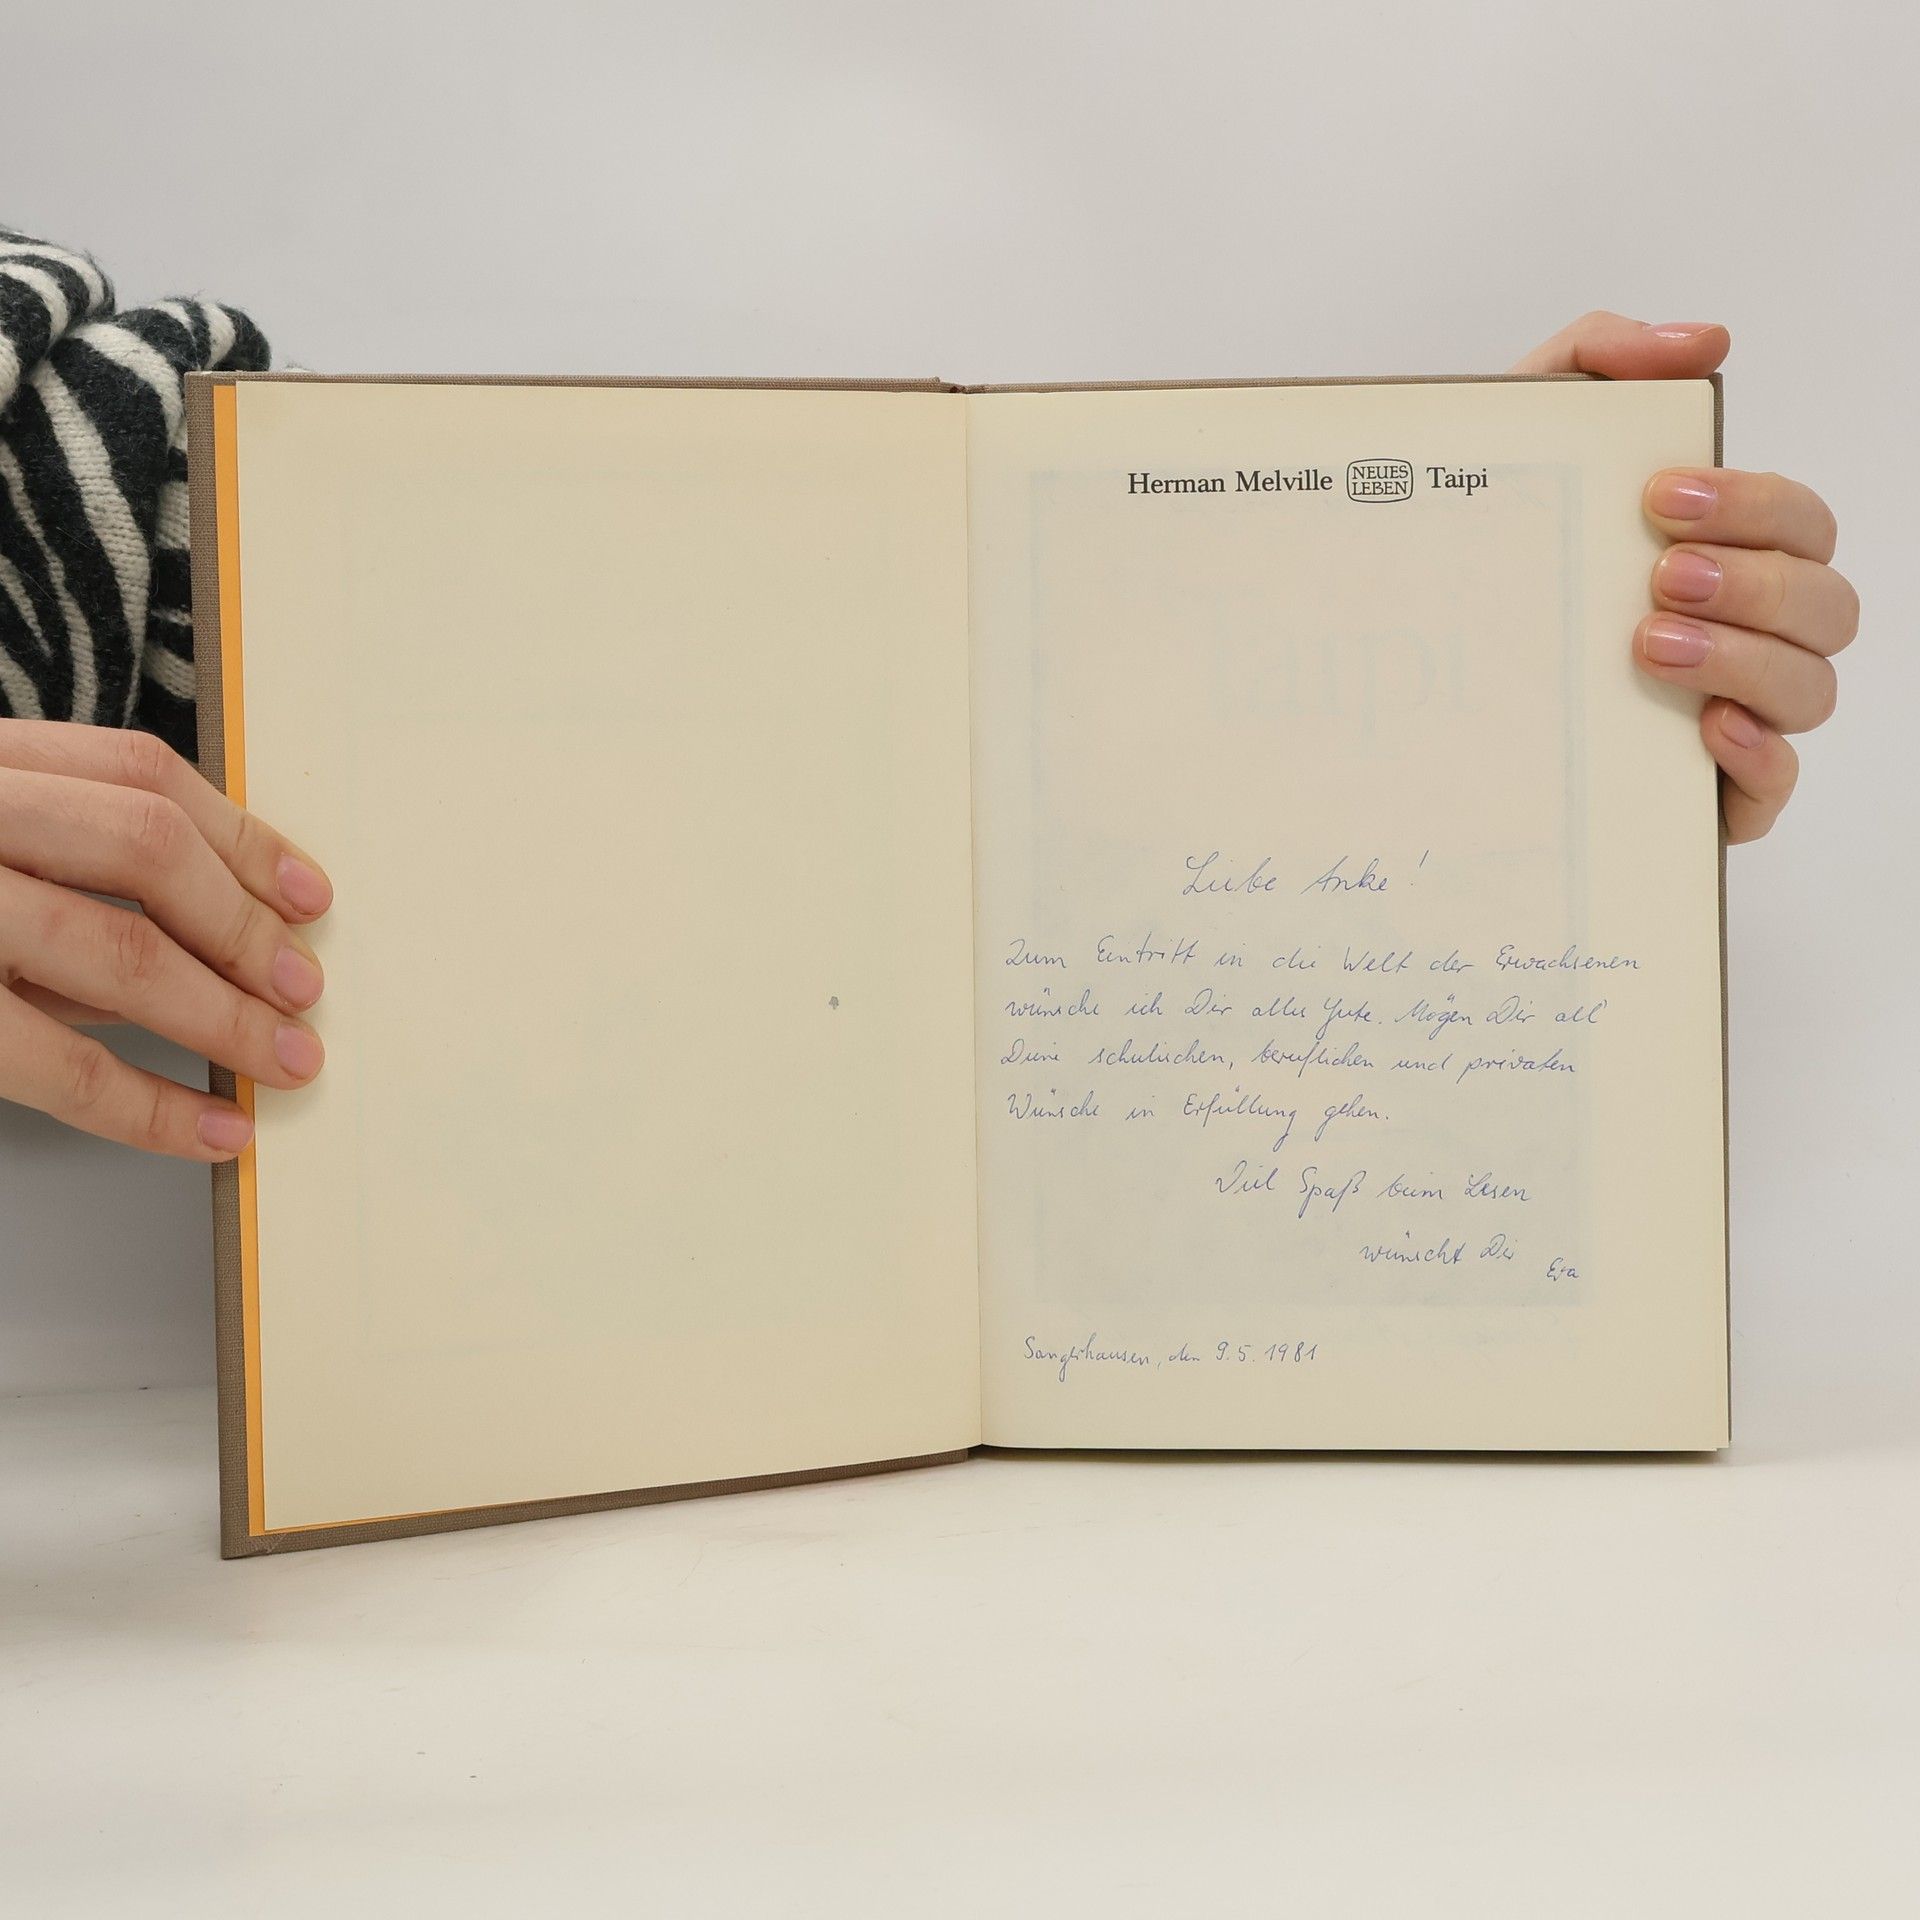 Herman Melville NEUES LEBEN Taipi
Liebe Anke!
Zum Eintritt in die Welt der Erwachsenen
wünsche ich Dir alles Gute. Mögen Dir all'
Deine schulischen, beruflichen und privaten
Wünsche in Erfüllung gehen.
Viel Spaß beim Lesen
wünscht Dir
Eva
Sangerhausen, den 9.5.1981